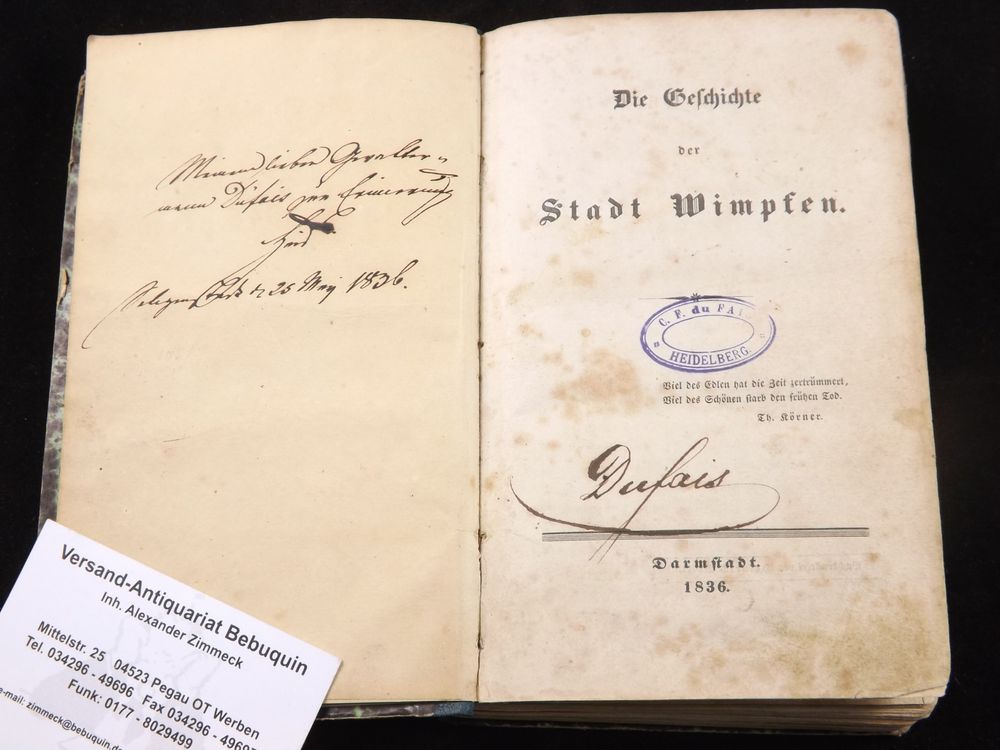 Meinem lieben Gevatter-
mann Dufais zur Erinnerung
Seligenstadt d. 25 May 1836.
Die Geſchichte
der
Stadt Wimpfen.
C. F. du FAIS
HEIDELBERG.
Viel des Edlen hat die Zeit zertrümmert,
Viel des Schönen ſtarb den frühen Tod.
Th. Körner.
Dufais
Darmſtadt.
1836.
Versand-Antiquariat Bebuquin
Inh. Alexander Zimmeck
Mittelstr. 25 04523 Pegau OT Werben
Tel. 034296 - 49696 Fax 034296 - 49697
Funk: 0177 - 8029499
e-mail: zimmeck@bebuquin.de